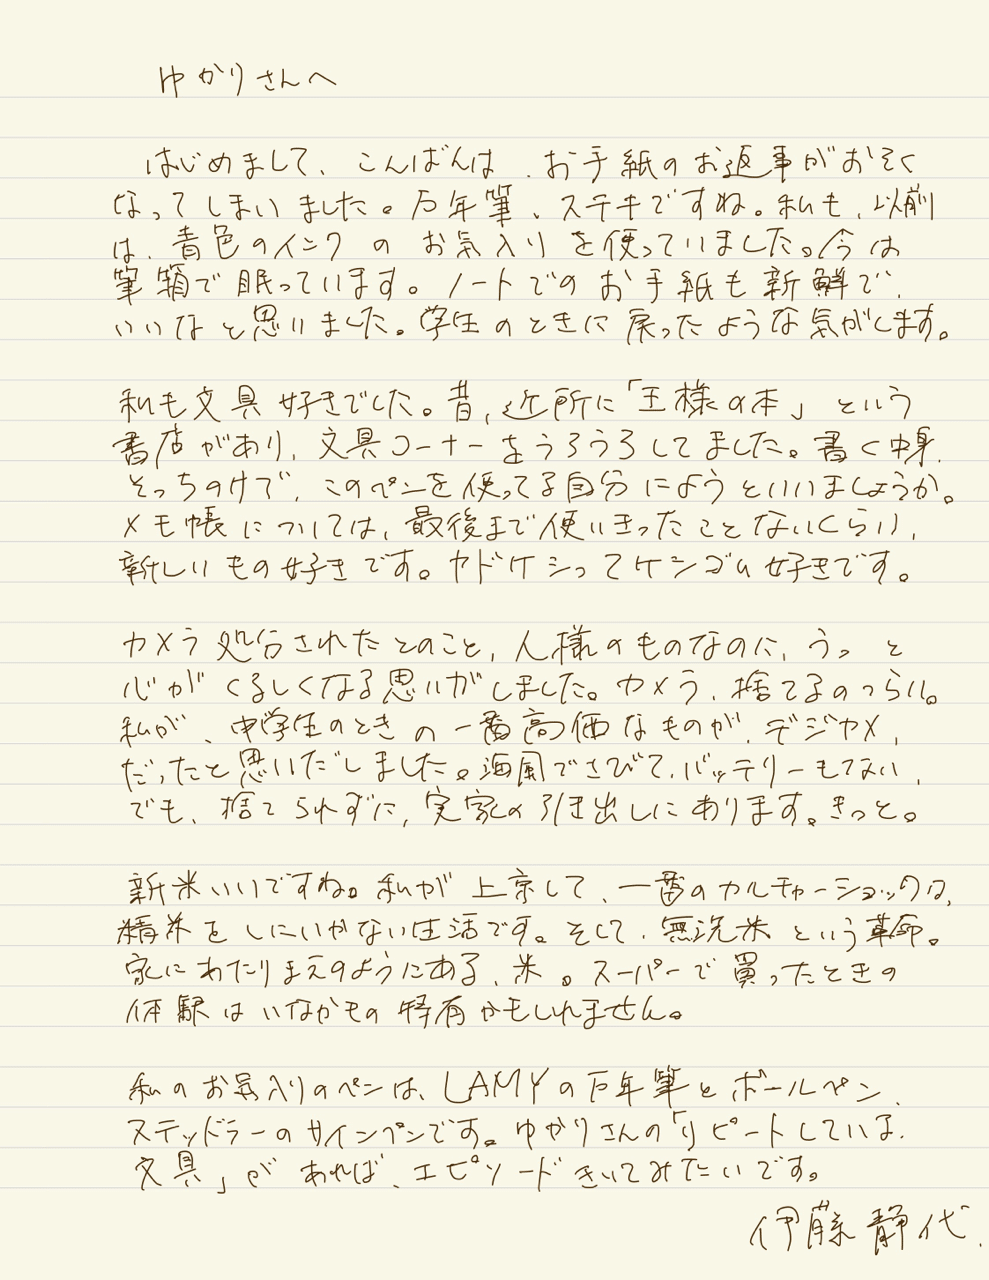 ゆかりさんへ
はじめまして、こんばんは、お手紙のお返事がおそく
なってしまいました。万年筆、ステキですね。私も、以前
は、青色のインクのお気入りを使っていました。今は
筆箱で眠っています。ノートでのお手紙も新鮮で、
いいなと思いました。学生のときに戻ったような気がします。
私も文具好きでした。昔、近所に「王様の本」という
書店があり、文具コーナーをうろうろしてました。書く中身、
そっちのけで、このペンを使ってる自分にようといいましょうか。
メモ帳については、最後まで使いきったことないくらい、
新しいもの好きです。カドケシってケシゴム好きです。
カメラ処分されたとのこと、人様のものなのに、うっと
心がくるしくなる思いがしました。カメラ、捨てるのつらい。
私が、中学生のときの一番高価なものが、デジカメ、
だったと思いだしました。海風でさびて、バッテリーもてない、
でも、捨てられずに、実家の引き出しにあります。きっと。
新米いいですね。私が上京して、一番のカルチャーショックは、
精米をしにいかない生活です。そして、無洗米という革命。
家にあたりまえのようにある、米。スーパーで買ったときの
体験はいなかもの特有かもしれません。
私のお気入りのペンは、LAMYの万年筆とボールペン、
ステッドラーのサインペンです。ゆかりさんの「リピートしている、
文具」があれば、エピソードきいてみたいです。
伊藤静代.